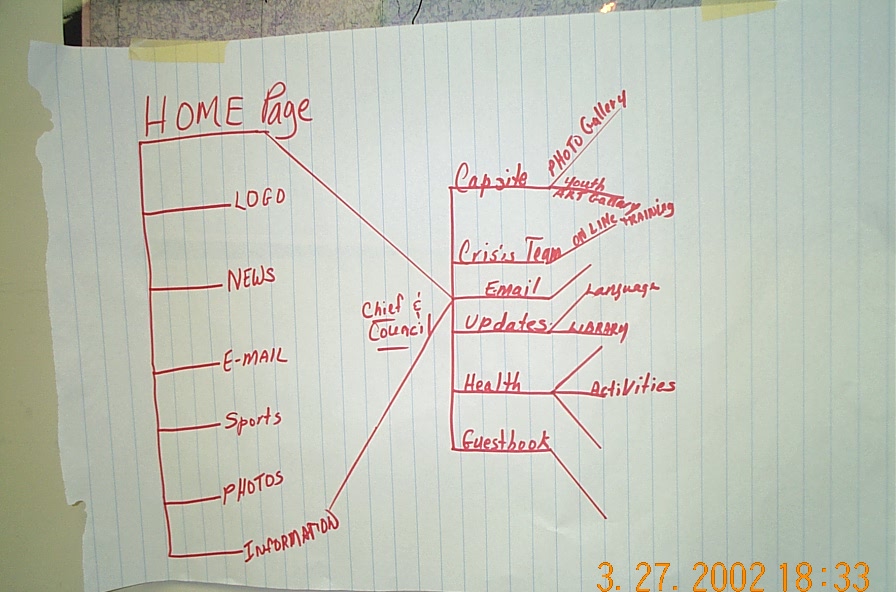 HOME Page
LOGO
NEWS
E-MAIL
Sports
PHOTOS
INFORMATION
Chief &
Council
Capsite
PHOTO Gallery
Youth
ART Gallery
Crisis Team
ON LINE TRAINING
Email
Updates
Language
LIBRARY
Health
Activities
Guestbook
3. 27. 2002 18:33